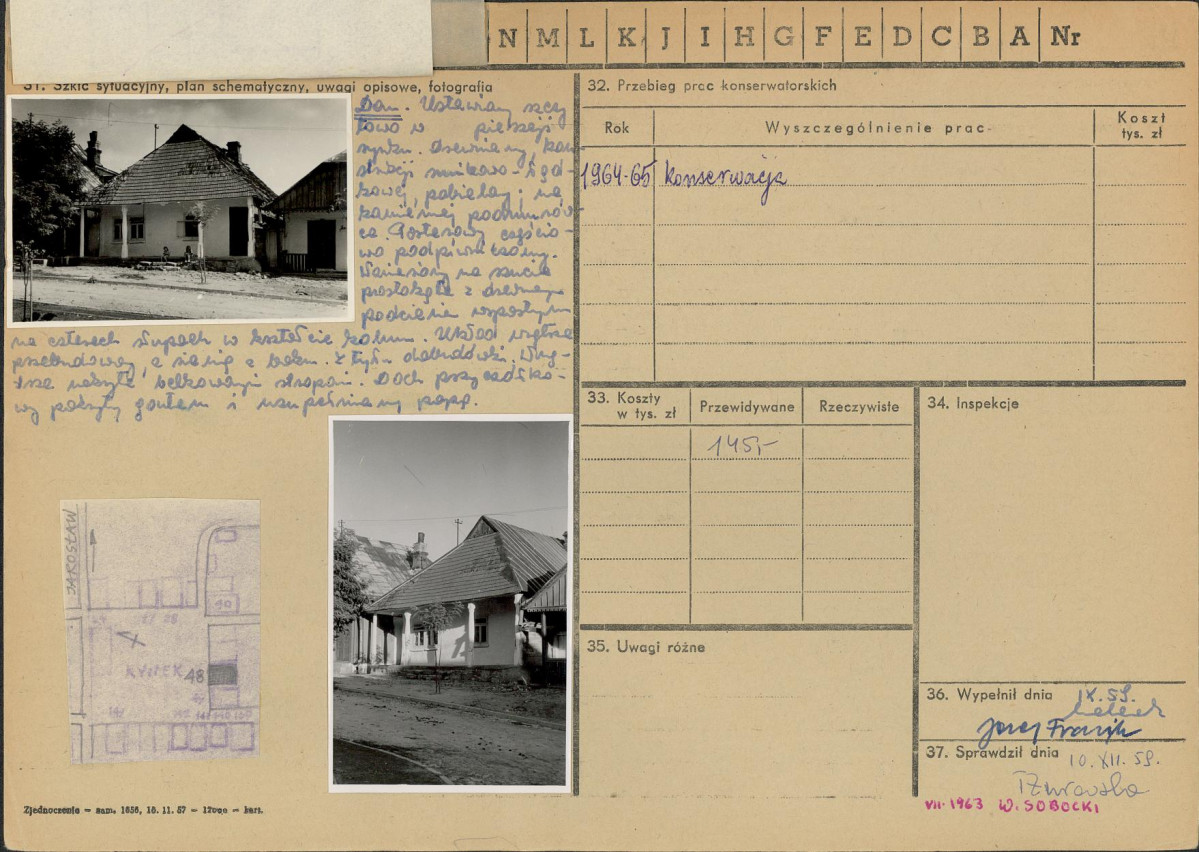 N M L K J I H G F E D C B A Nr
31. Szkic sytuacyjny, plan schematyczny, uwagi opisowe, fotografia
Dom. Ustawiony szczy-
towo w pierzeji
rynku. Drewniany, kon
strukcji sumikowo-łąt-
kowej, pobielany, na
kamiennej podmurów-
ce. Parterowy częścio-
wo podpiwniczony.
Wzniesiony na rzucie
prostokąta z drewnianym
podcieniem wspartym
na czterech słupach w kształcie kolumn. Układ wnętrza
przebudowany, z sienią z boku. Z tyłu dobudówki. Wnę-
trza nakryte belkowanymi stropami. Dach przyczółko-
wy pokryty gontem i uzupełniany papą.
JAROSŁAW
RYNEK 48
32. Przebieg prac konserwatorskich
Rok
Wyszczególnienie prac
Koszt
tys. zł
1964-65 konserwacja
33. Koszty
w tys. zł
Przewidywane
Rzeczywiste
145,-
34. Inspekcje
35. Uwagi różne
36. Wypełnił dnia IX.59.
Józef Frazik
37. Sprawdził dnia 10.XII.59.
VII-1963 W. SOBOCKI
Zjednoczenie — zam. 1656, 16. 11. 57 — 12000 — kart.